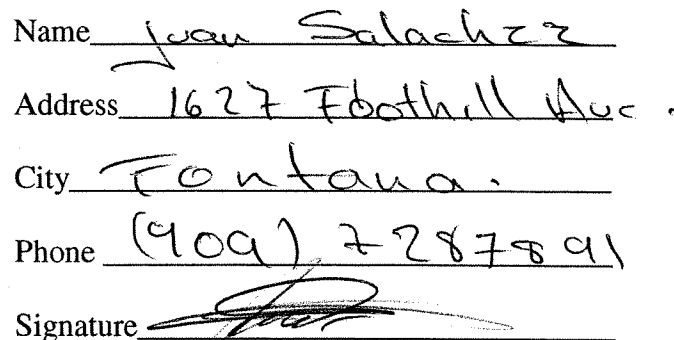 Name Juan Salachzz
Address 1627 Foothill Ave.
City Fontana.
Phone (909) 7287891
Signature